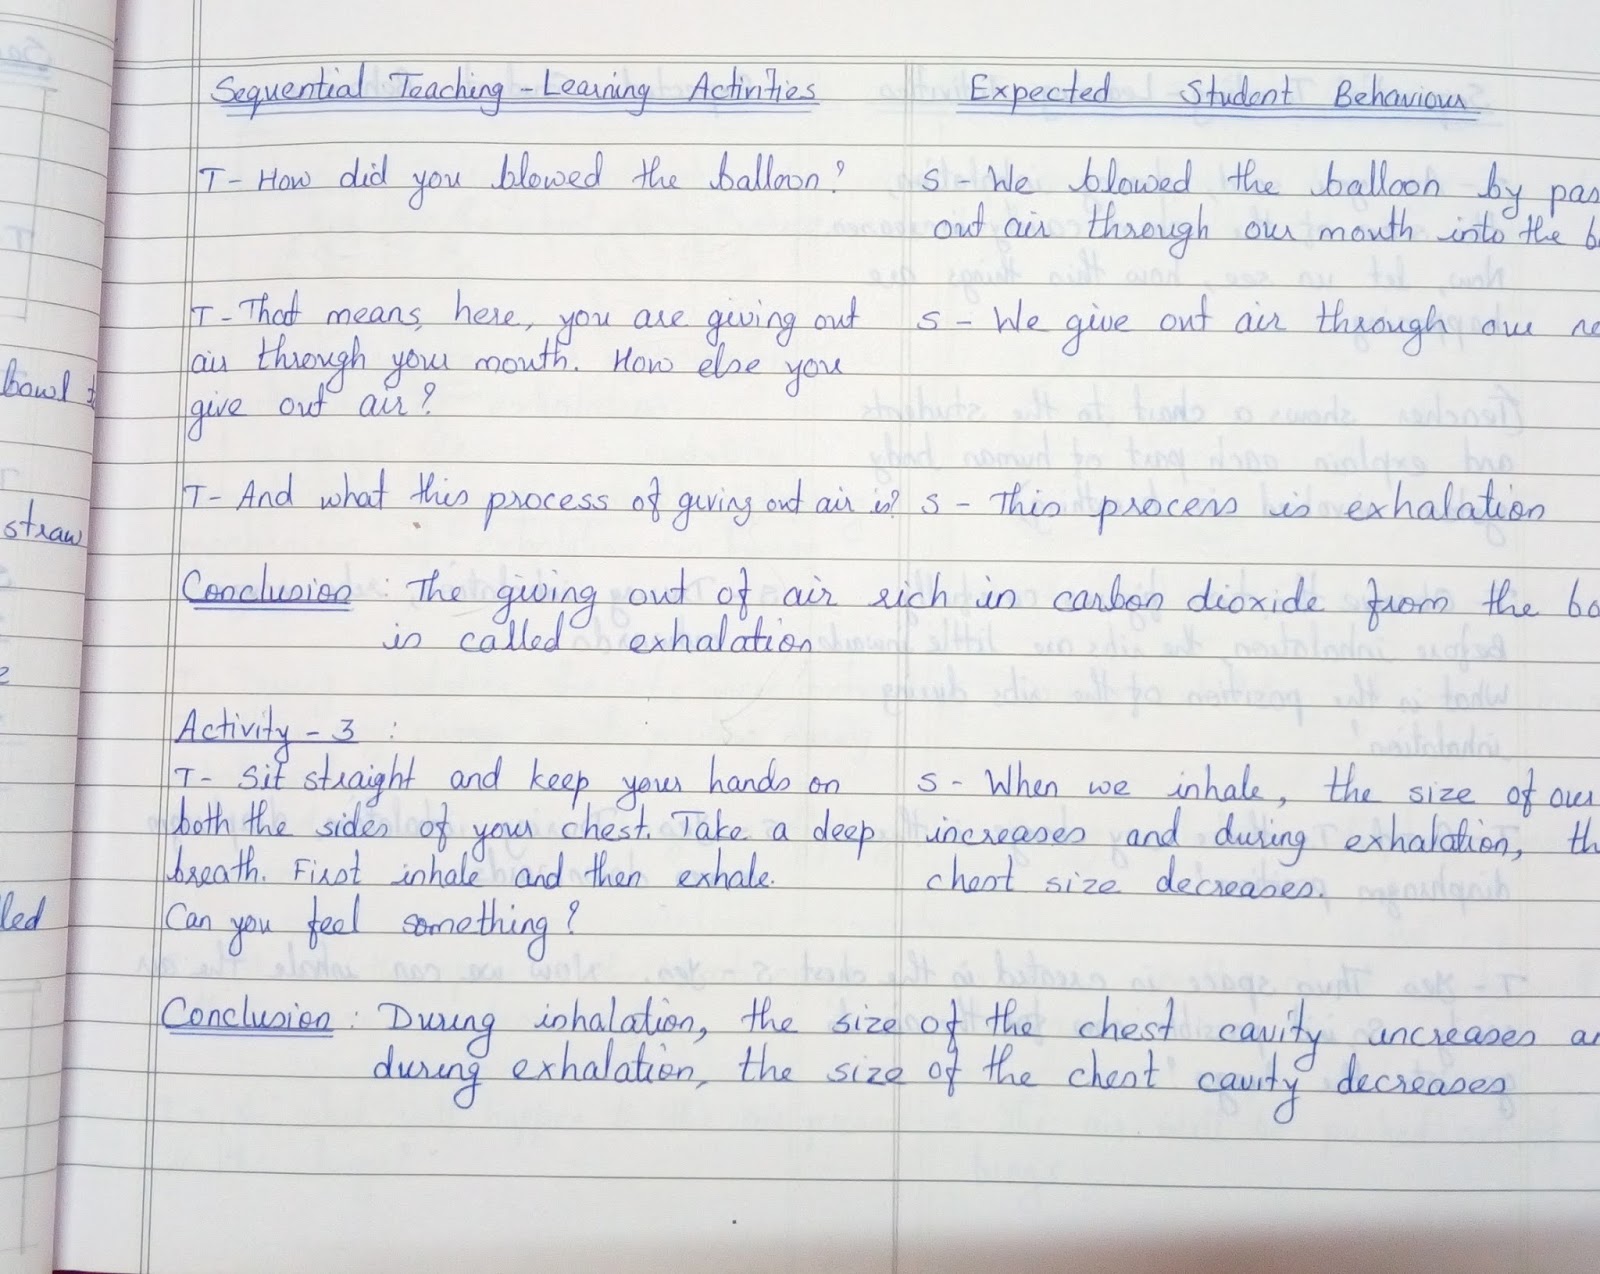 Sequential Teaching-Learning Activities
Expected Student Behaviour
T- How did you blowed the balloon?
S - We blowed the balloon by pas
out air through our mouth into the b
T- That means, here, you are giving out
air through your mouth. How else you
give out air?
S - We give out air through our
T- And what this process of giving out air is?
S - This process is exhalation
Conclusion : The giving out of air rich in carbon dioxide from the bo
is called exhalation
Activity - 3 :
T- Sit straight and keep your hands on
both the sides of your chest. Take a deep
breath. First inhale and then exhale.
Can you feel something?
S - When we inhale, the size of our
increases and during exhalation, th
chest size decreases.
Conclusion : During inhalation, the size of the chest cavity increases a
during exhalation, the size of the chest cavity decreases
bowl
straw
led